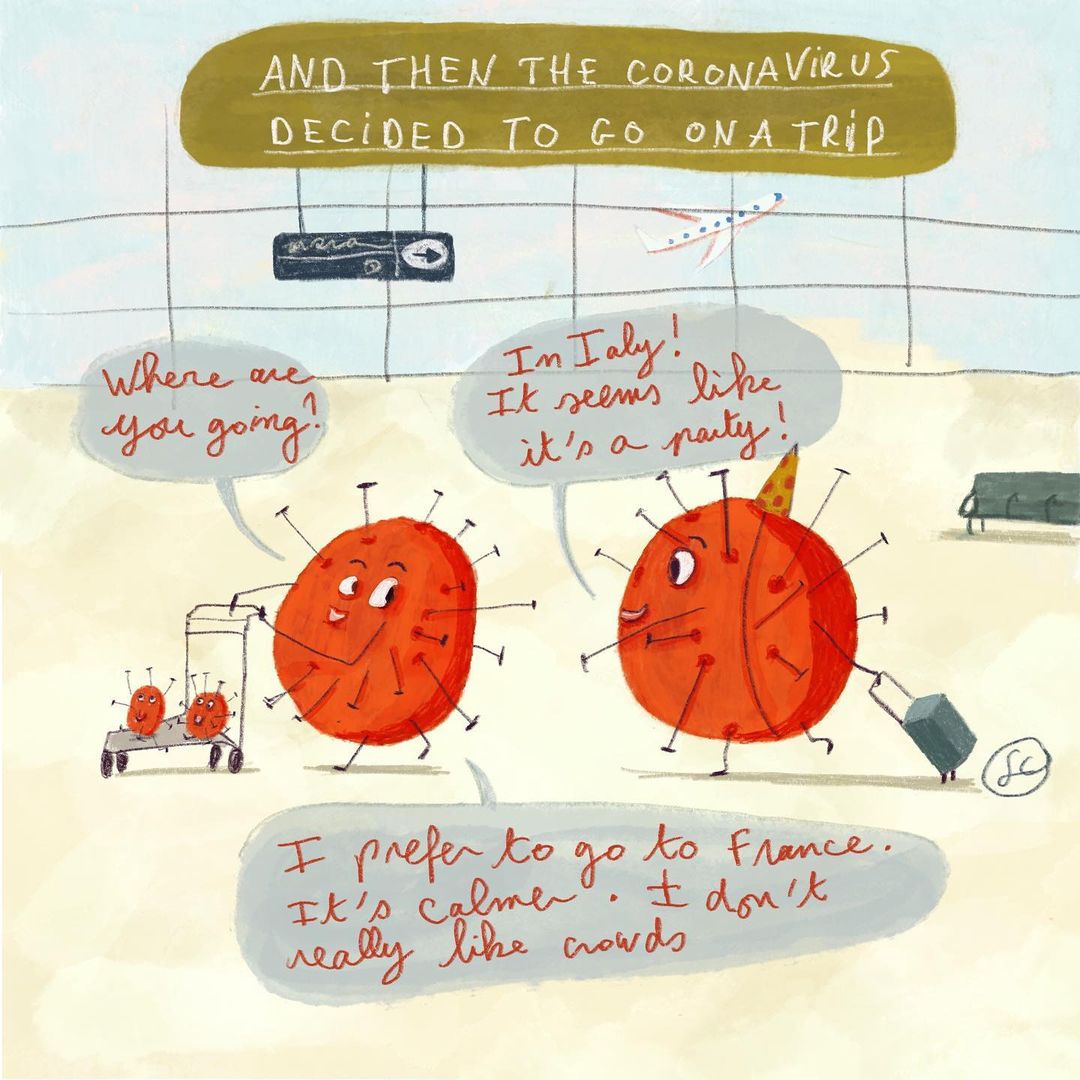 AND THEN THE CORONAVIRUS
DECIDED TO GO ON A TRIP
Where are
you going?
In Italy!
It seems like
it's a party!
I prefer to go to France.
It's calmer. I don't
really like crowds